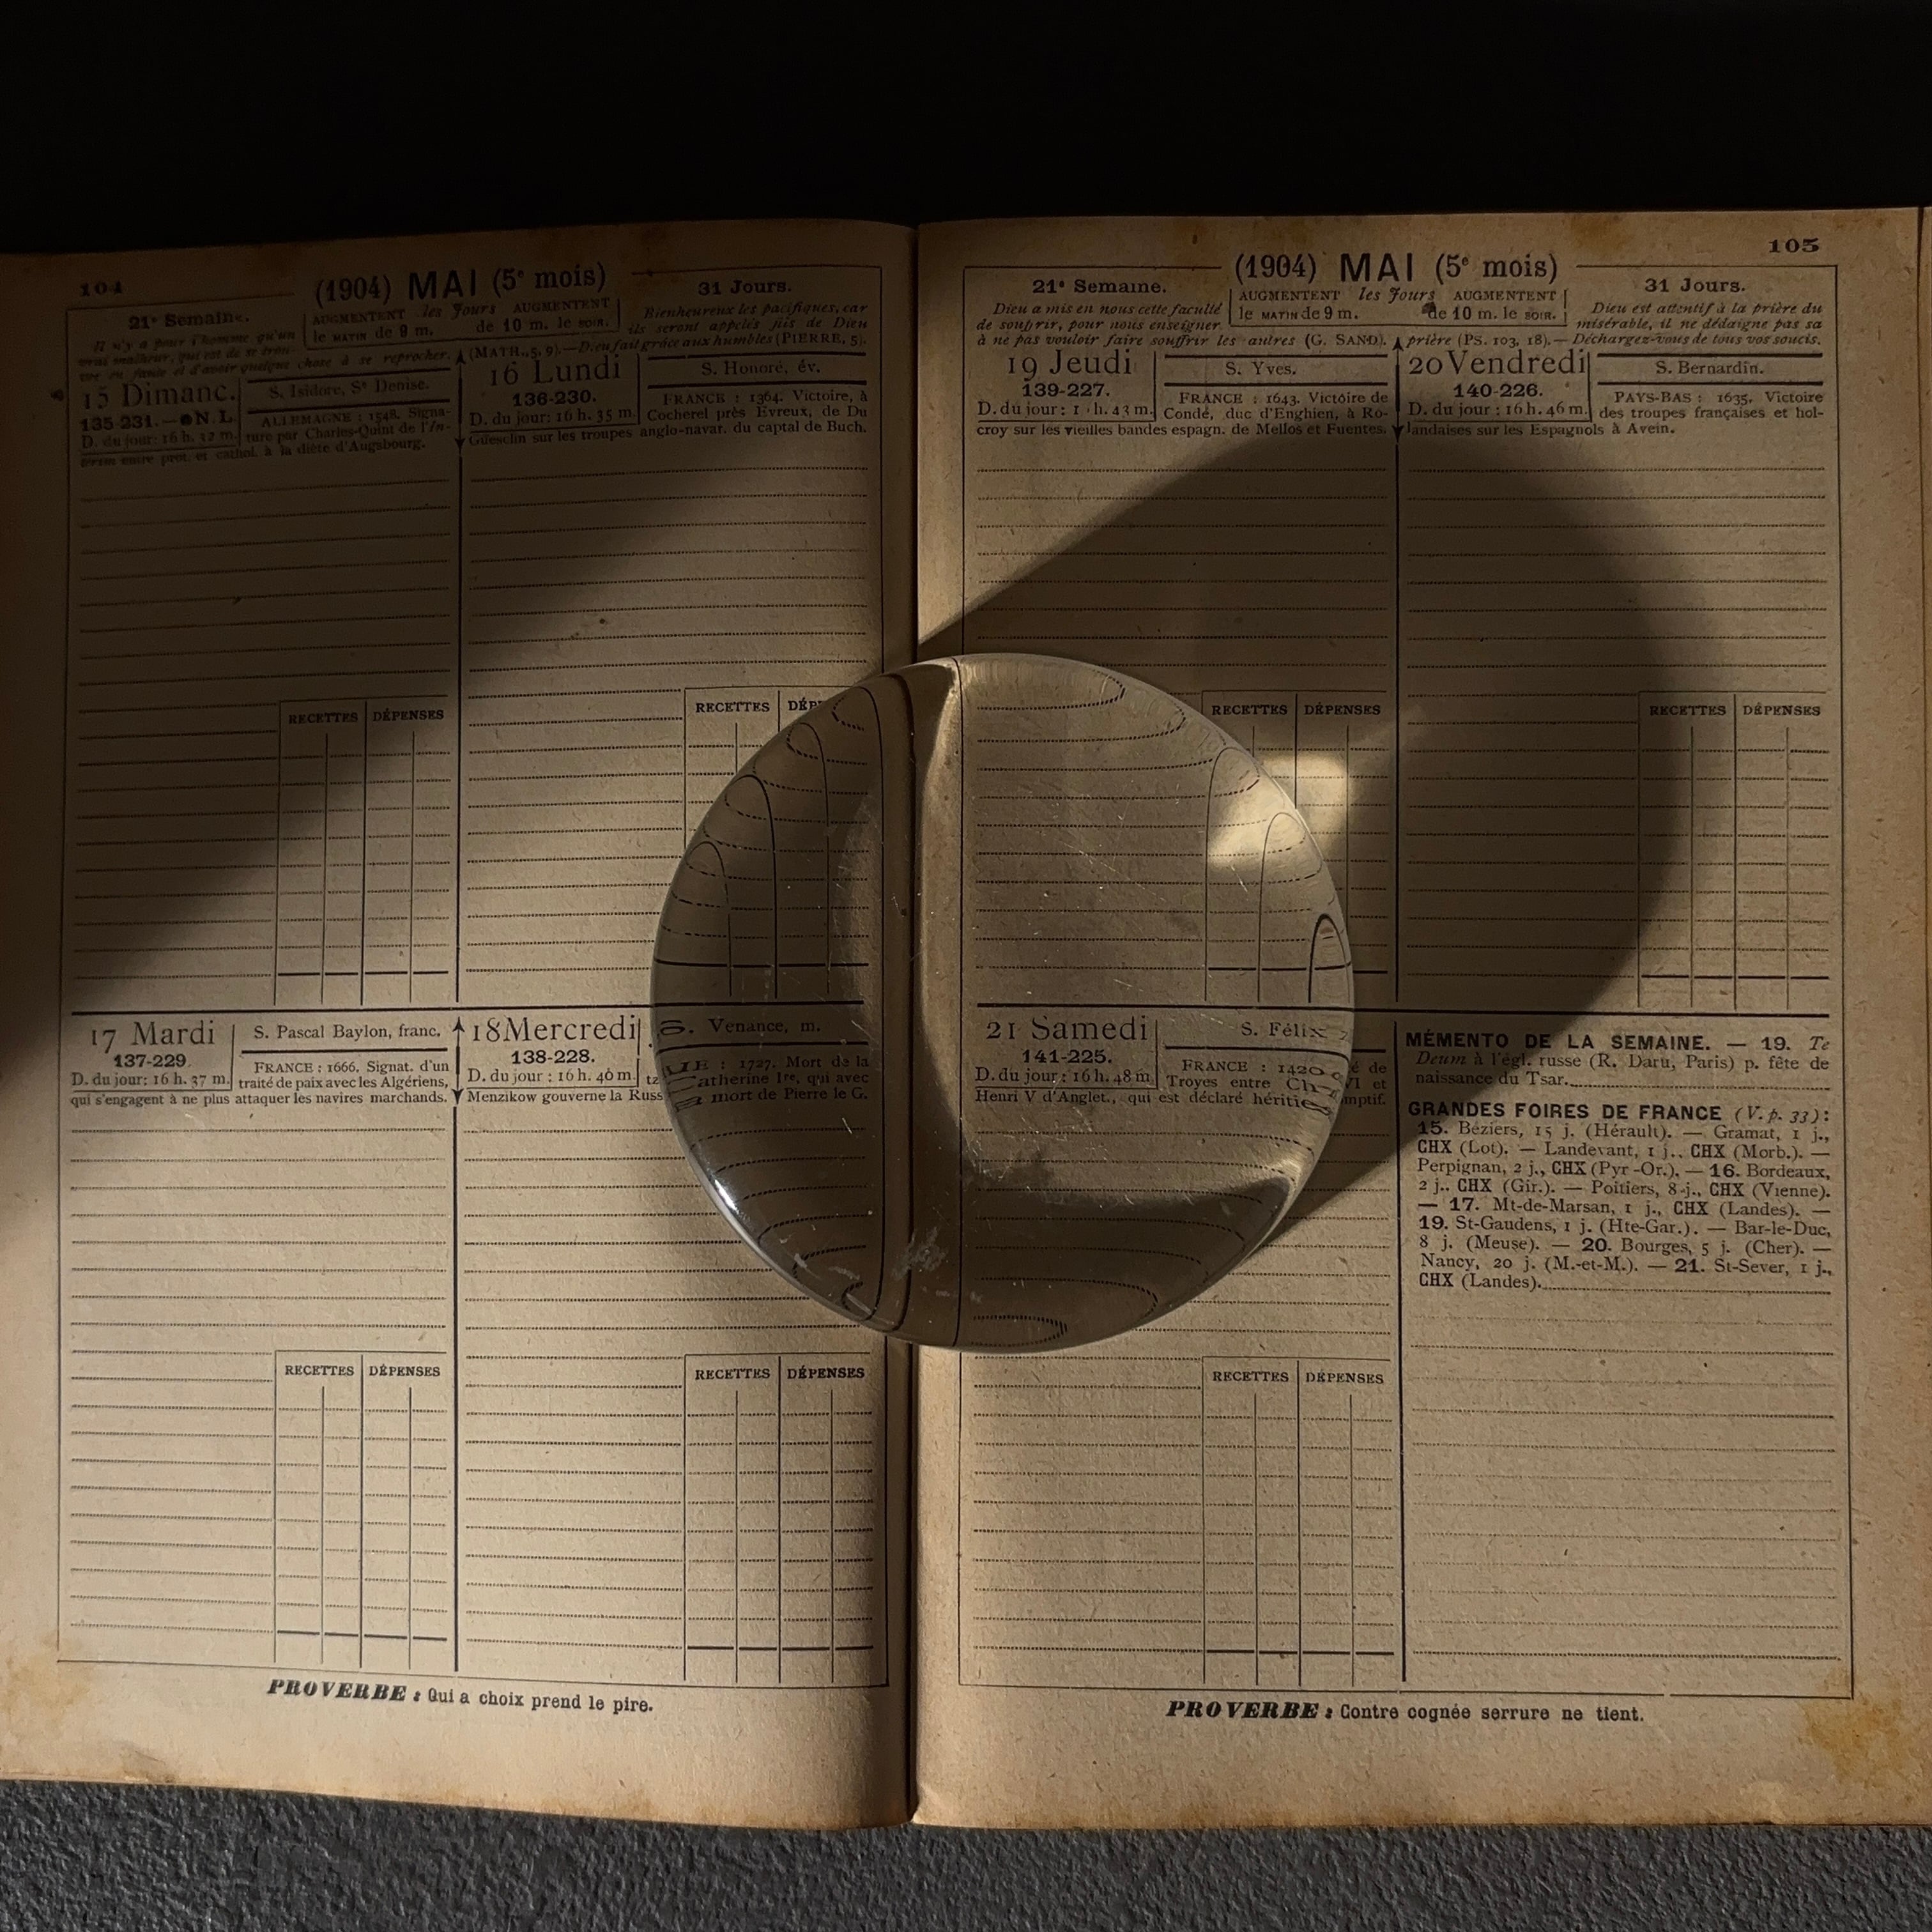 104
(1904) MAI (5e mois)
21e Semaine.
Il n'y a pour l'homme qu'un
vrai malheur, qui est de se trou-
ver en faute et d'avoir quelque chose à se reprocher.
AUGMENTENT les Jours AUGMENTENT
le MATIN de 9 m. de 10 m. le SOIR.
31 Jours.
Bienheureux les pacifiques, car
ils seront appelés fils de Dieu
(MATH., 5, 9).—Dieu fait grâce aux humbles (PIERRE, 5).
15 Dimanc.
135-231.—●N. L.
D. du jour: 16 h. 32 m.
S. Isidore, Ste Denise.
ALLEMAGNE : 1548. Signa-
ture par Charles-Quint de l'In-
térim entre prot. et cathol. à la diète d'Augsbourg.
16 Lundi
136-230.
D. du jour: 16 h. 35 m.
S. Honoré, év.
FRANCE : 1364. Victoire, à
Cocherel près Evreux, de Du
Guesclin sur les troupes anglo-navar. du captal de Buch.
RECETTES DÉPENSES
RECETTES
17 Mardi
137-229.
D. du jour: 16 h. 37 m.
S. Pascal Baylon, franc.
FRANCE : 1666. Signat. d'un
traité de paix avec les Algériens,
qui s'engagent à ne plus attaquer les navires marchands.
18 Mercredi
138-228.
D. du jour : 16 h. 40 m.
S. Venance, m.
: 1727. Mort de la
Catherine Ire, qui avec
Menzikow gouverne la mort de Pierre le G.
RECETTES DÉPENSES
RECETTES DÉPENSES
PROVERBE : Qui a choix prend le pire.
105
(1904) MAI (5e mois)
21e Semaine.
Dieu a mis en nous cette faculté
de souffrir, pour nous enseigner
à ne pas vouloir faire souffrir les autres (G. SAND).
AUGMENTENT les Jours AUGMENTENT
le MATIN de 9 m. de 10 m. le SOIR.
31 Jours.
Dieu est attentif à la prière du
misérable, il ne dédaigne pas sa
prière (PS. 103, 18).— Déchargez-vous de tous vos soucis.
19 Jeudi
139-227.
D. du jour: h. 43 m.
S. Yves.
FRANCE : 1643. Victoire de
Condé, duc d'Enghien, à Ro-
croy sur les vieilles bandes espagn. de Mellos et Fuentes.
20 Vendredi
140-226.
D. du jour : 16 h. 46 m.
S. Bernardin.
PAYS-BAS : 1635. Victoire
des troupes françaises et hol-
landaises sur les Espagnols à Avein.
RECETTES DÉPENSES
RECETTES DÉPENSES
21 Samedi
141-225.
D. du jour : 16 h. 48 m.
S. Félix
FRANCE : 1420 de
Troyes entre VI et
Henri V d'Anglet., qui est déclaré
RECETTES DÉPENSES
MÉMENTO DE LA SEMAINE. — 19. Te
Deum à l'égl. russe (R. Daru, Paris) p. fête de
naissance du Tsar.
GRANDES FOIRES DE FRANCE (V. p. 33) :
15. Béziers, 15 j. (Hérault). — Gramat, 1 j.,
CHX (Lot). — Landevant, 1 j., CHX (Morb.). —
Perpignan, 2 j., CHX (Pyr-Or.). — 16. Bordeaux,
2 j., CHX (Gir.). — Poitiers, 8 j., CHX (Vienne).
— 17. Mt-de-Marsan, 1 j., CHX (Landes). —
19. St-Gaudens, 1 j. (Hte-Gar.). — Bar-le-Duc,
8 j. (Meuse). — 20. Bourges, 5 j. (Cher). —
Nancy, 20 j. (M.-et-M.). — 21. St-Sever, 1 j.,
CHX (Landes).
PROVERBE : Contre cognée serrure ne tient.